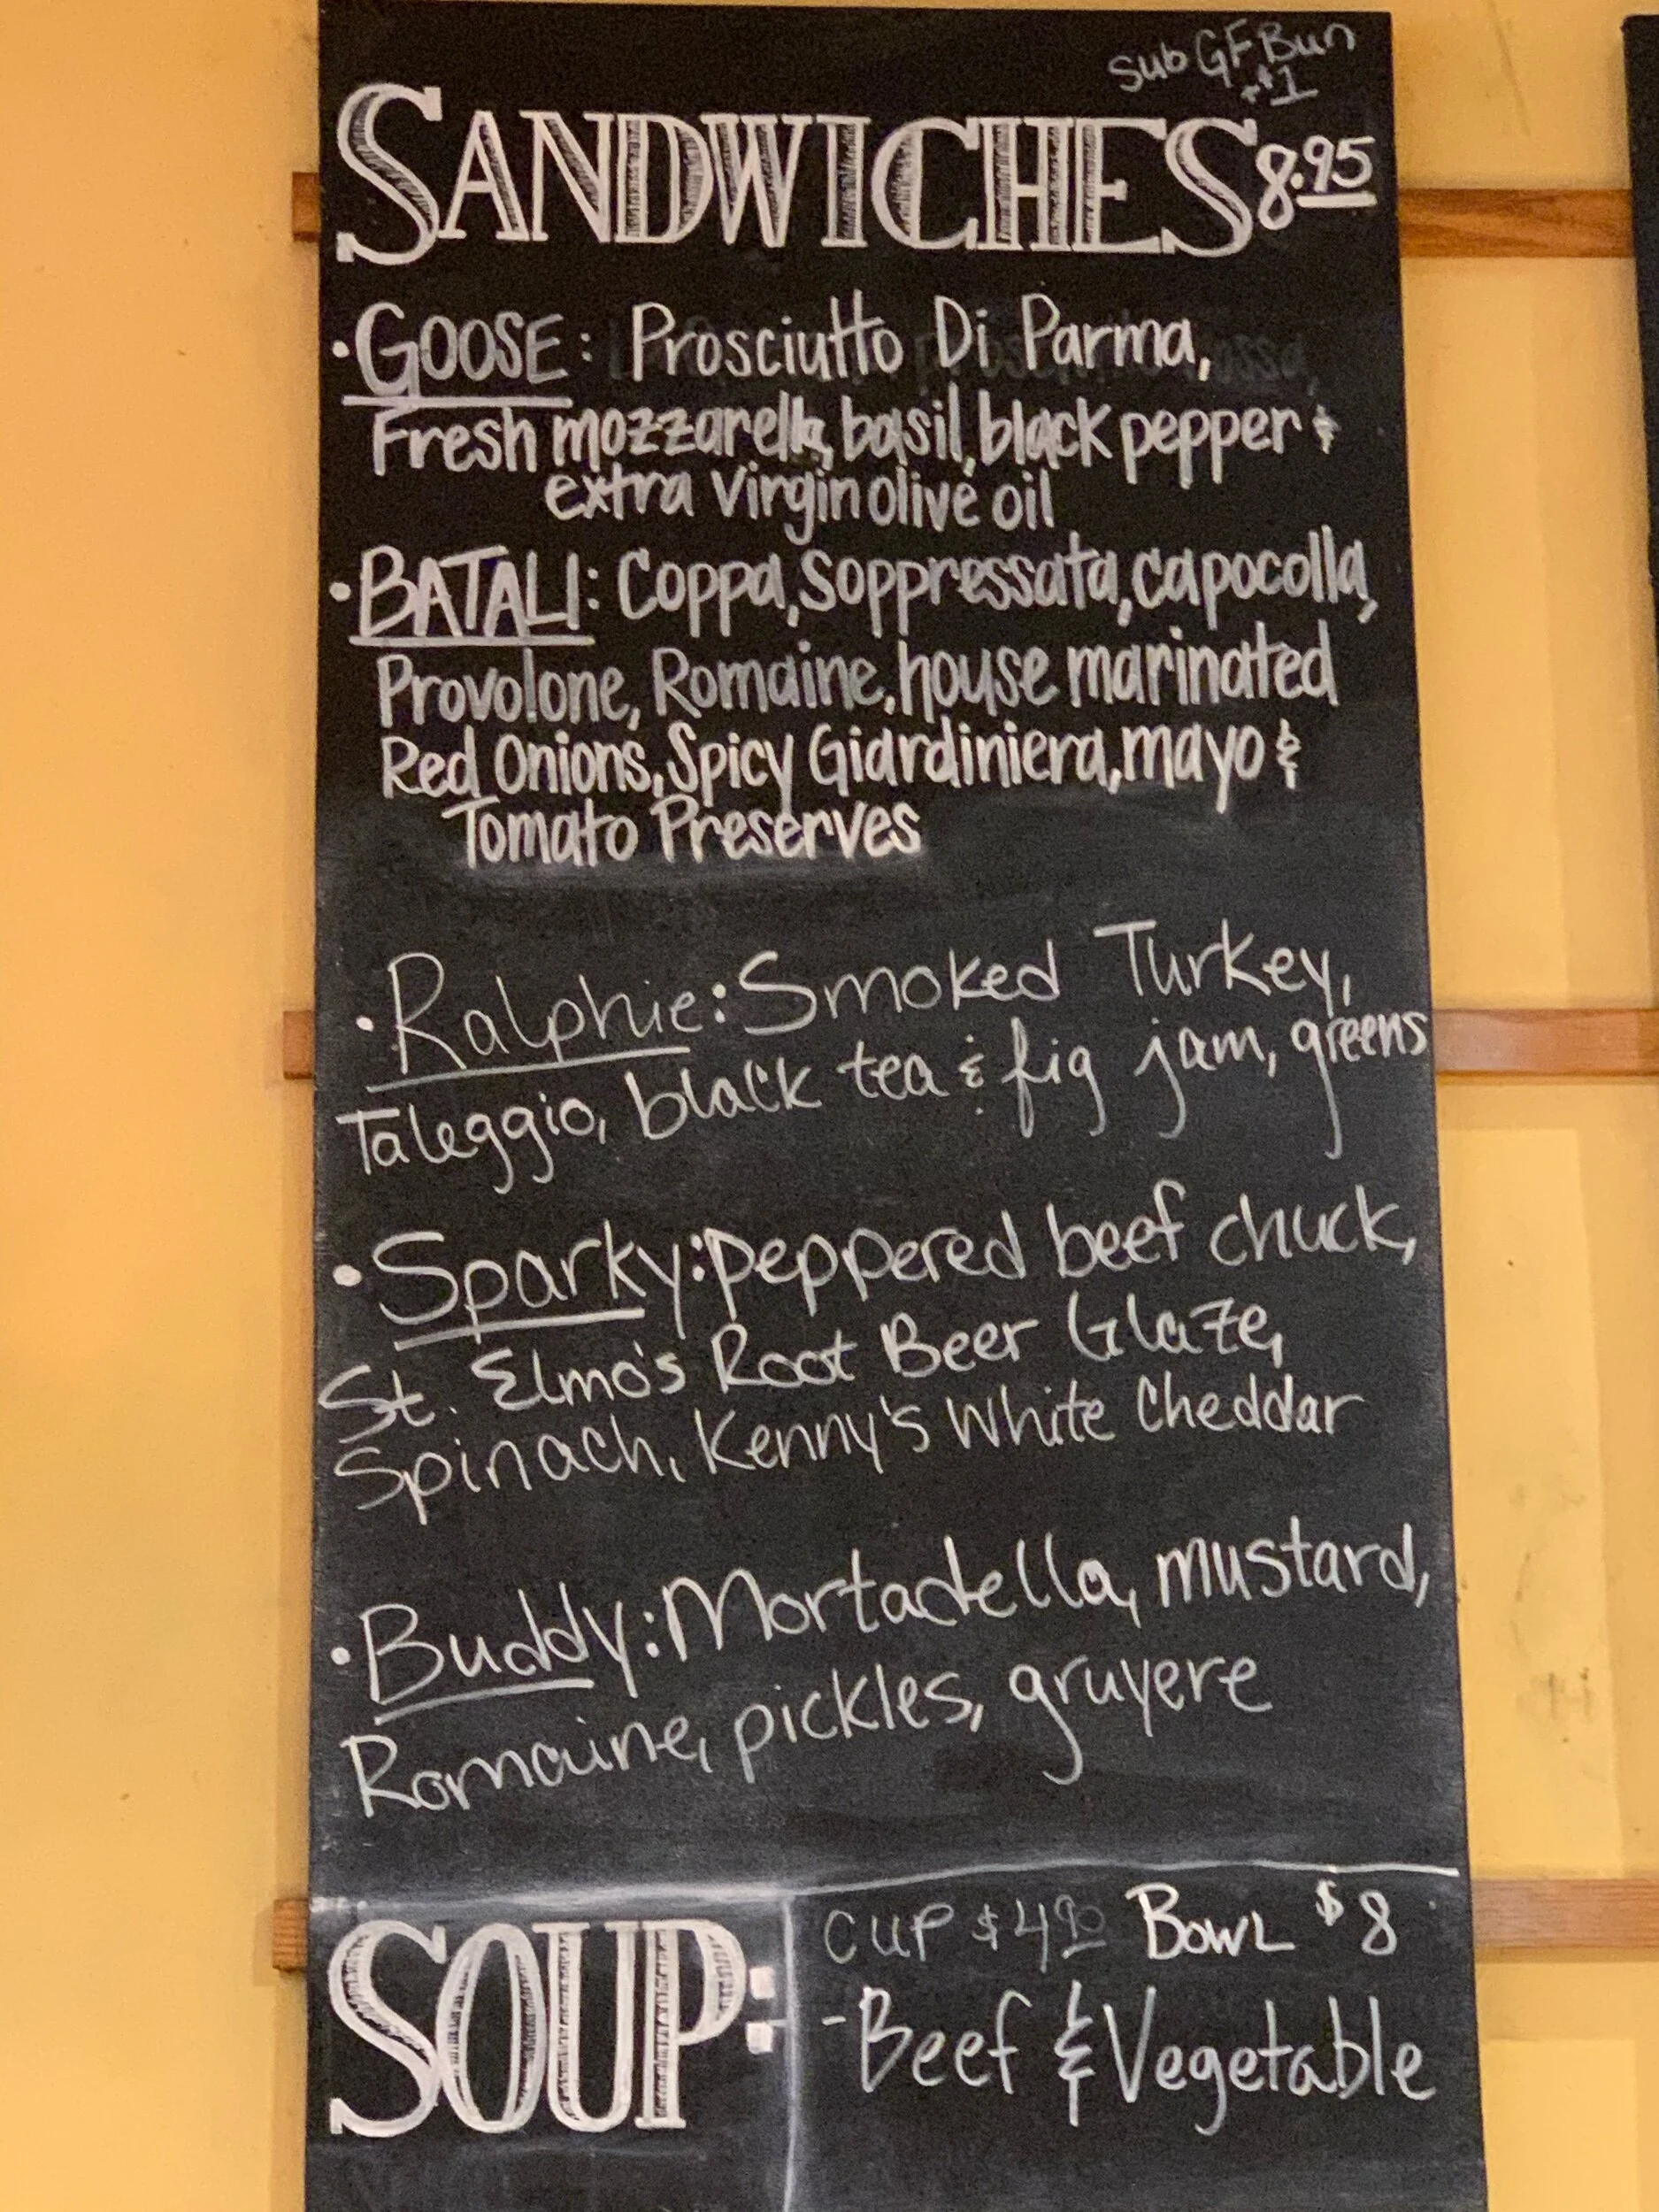 Sub GF Bun
+$1
SANDWICHES 8.95
•GOOSE: Prosciutto Di Parma,
Fresh mozzarella, basil, black pepper &
extra virgin olive oil
•BATALI: Coppa, Soppressata, capocolla,
Provolone, Romaine, house marinated
Red Onions, Spicy Giardiniera, mayo &
Tomato Preserves
•Ralphie: Smoked Turkey,
Taleggio, black tea & fig jam, greens
•Sparky: peppered beef chuck,
St. Elmo's Root Beer Glaze,
Spinach, Kenny's White Cheddar
•Buddy: Mortadella, mustard,
Romaine, pickles, gruyere
SOUP:
CUP $4.90 BOWL $8
-Beef & Vegetable